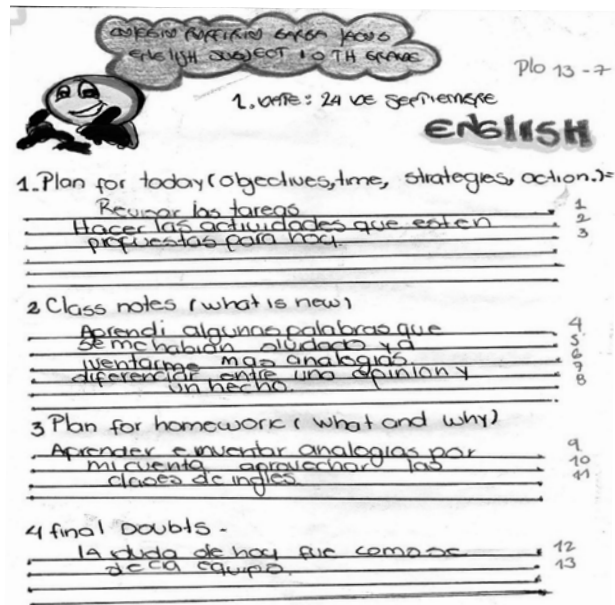 COLEGIO PORFIRIO BARBA JACOB
ENGLISH SUBJECT 10 TH GRADE
Plo 13-7
1. DATE: 24 DE SEPTIEMBRE
ENGLISH
1. Plan for today (objectives, time, strategies, action.)=
Revisar las tareas 1
Hacer las actividades que esten 2
propuestas para hoy. 3
2 Class notes (what is new)
Aprendi algunas palabras que 4
se me habian olvidado y a 5
inventarme mas analogias 6
diferenciar entre una opinion y 7
un hecho. 8
3 Plan for homework (what and why)
Aprender e inventar analogias por 9
mi cuenta aprovechar las 10
clases de ingles 11
4 final Doubts.
la duda de hoy fue como se 12
decia equipo. 13